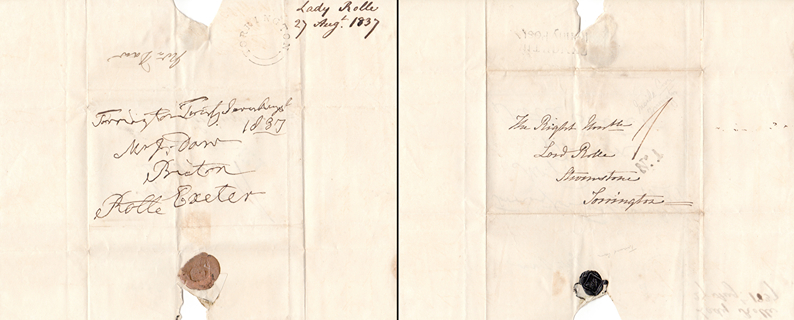 Lady Rolle
27 Augt. 1837
TORRINGTON
Mr. Daw
Torrington Twenty Seven Augst
1837
Mr. J. Daw
Bicton
Rolle Exeter
The Right Honble
Lord Rolle
Stevenstone
Torrington
Lady Rolle